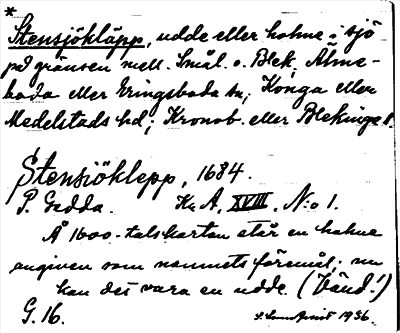 *
Stensjökläpp, udde eller holme i sjö
på gränsen mell. Smål. o. Blek. Älme-
boda eller Eringsboda sn; Konga eller
Medelstads hd; Kronob. eller Blekinge l.
Stensjöklepp, 1684.
P. Gedda. K. A. XVIII. N:o 1.
Å 1600-talskartan står en holme
angiven som namnets föremål; nu
kan det vara en udde. (Vänd!)
G. 16. 1936.